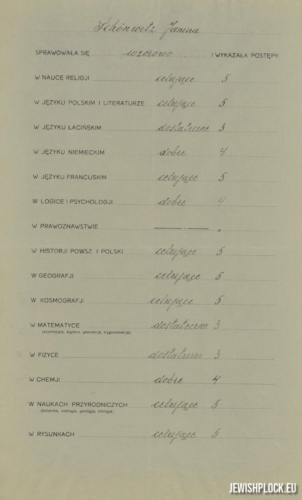 Schönwitz Janina
SPRAWOWAŁA SIĘ wzorowo I WYKAZAŁA POSTĘPY:
W NAUCE RELIGJI celujące 5
W JĘZYKU POLSKIM I LITERATURZE celujące 5
W JĘZYKU ŁACIŃSKIM dostateczne 3
W JĘZYKU NIEMIECKIM dobre 4
W JĘZYKU FRANCUSKIM celujące 5
W LOGICE I PSYCHOLOGJI dobre 4
W PRAWOZNAWSTWIE — —
W HISTORJI POWSZ. I POLSKI celujące 5
W GEOGRAFJI celujące 5
W KOSMOGRAFJI celujące 5
W MATEMATYCE dostateczne 3
W FIZYCE dostateczne 3
W CHEMJI dobre 4
W NAUKACH PRZYRODNICZYCH celujące 5
W RYSUNKACH celujące 5
JEWISHPLOCK.EU